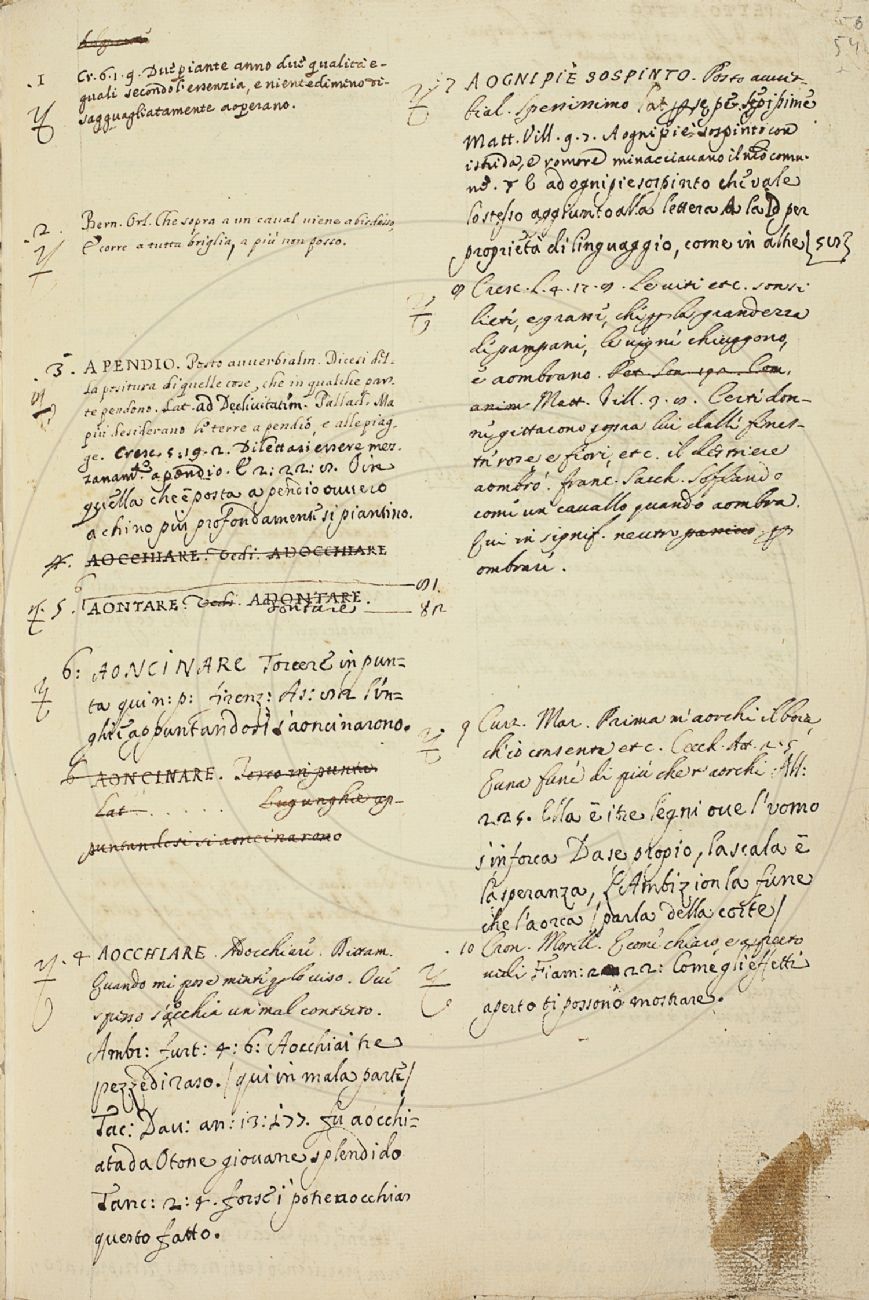 54
.1 Cr. 6. 1. 9. Due piante anno due qualità e-
quali secondo l'essenzia, e nientedimeno di-
sagguagliatamente aoperano.
2. Bern. Orl. Che sopra a un caval viene a bisdosso,
E corre a tutta briglia, a più non posso.
3. A PENDIO. Posto avverbialm. Dicesi del-
la positura di quelle cose, che in qualche par-
te pendono. Lat. ad Declivitatem. Pallad. Ma
più desiderano le terre a pendio, e alle piag-
ge. Cresc. 5. 19. 2. Dilettasi essere mez-
zanam.te a pendio. E 2: 22: 8. O in
quella che è posta a pendio ovvero
a chino più profondamente si piantino.
4. AOCCHIARE. Vedi. ADOCCHIARE
5. AONTARE. Vedi. ADONTARE.
6: AONCINARE Torcere in pun=
ta quin: p: firenz: As: l'un=
ghie appuntandosi s'aoncinarono.
6 AONCINARE. Torco in punta.
Lat - . . . . . Le gunghie ap-
puntandosi si aoncinarano
4 AOCCHIARE. Adocchiare. Dittam.
Quando mi pose mente lo viso. Ove
spesso s'aocchia un mal contento.
Ambr: Furt: 4: 6: Aocchiai tre
pezze di raso. / qui in mala parte /
Tac: Dav: an: 13: 177. fu aocchi=
ata da Otone giovane splendido
Tanc: 2: 4. forse i potre aocchiar
questo fatto.
7 A OGNI PIÈ SOSPINTO. Posto avver-
bial. spessissimo Lat. sepissime
Matt. Vill. 9. 7. A ogni piè sospinto con
istrida, e romore minacciavano il nostro comu-
ne. E ad ogni pie sospinto che vale
lo stesso aggiunto alla lettera A la D per
proprietà di linguaggio, come in altre
8 Cresc. L. 4. 17. 8. Le viti etc. son sì
lieti, e grassi, che la grandezza
di pampani, le vigne chiuggono,
e aombrano. Pet. Son. 192. Com.
anim Matt. Vill. 3. 8. Certi don-
ne gittarono sopra lui dalle fines-
tre rose e fiori, etc. il destriere
aombrò. franc. Sacch. Soffiando
come un cavallo quando aombra.
Qui in signif. neutro
ombrare.
9 Curz. Mar. Prima m'aorchi il boia
ch'io consenta etc. Cecch. 5
E una fune di più che t'aorchi. All:
225. Ella è i tre legni ove l'vomo
s'inforca Da se propio, la scala è
la speranza, E l'Ambizion la fune
che l'aorca / parla della corte /
10 Cron. Morell. E come chiaro e aperto
vedi Fiam: 2 22: Come gli effetti
aperto ti possono mostrare.